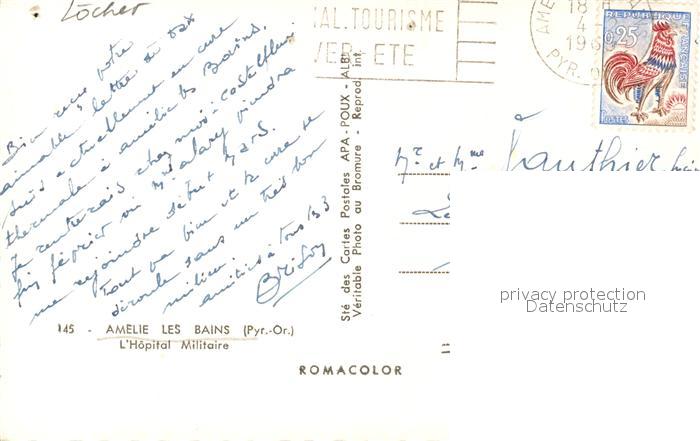 Locher
Bien reçu votre
aimable lettre du
suis actuellement en cure
thermale à Amélie les Bains.
Je rentrerais chez moi - Castelfleuri
fin février où Mr Salary viendra
me rejoindre début Mars.
Tout va bien et la cure se
déroule dans un très bon
milieu.
amitiés à tous les 3
145 - AMÉLIE LES BAINS (Pyr.-Or.)
L'Hôpital Militaire
ROMACOLOR
Sté des Cartes Postales APA - POUX - ALBI
Véritable Photo au Bromure - Reprod. Int.
AL. TOURISME
VER - ETE
AME
18 H
4
196
PYR. O
REPUBLIQUE FRANÇAISE
0,25
POSTES
Mr et Mme Vauthier
privacy protection
Datenschutz